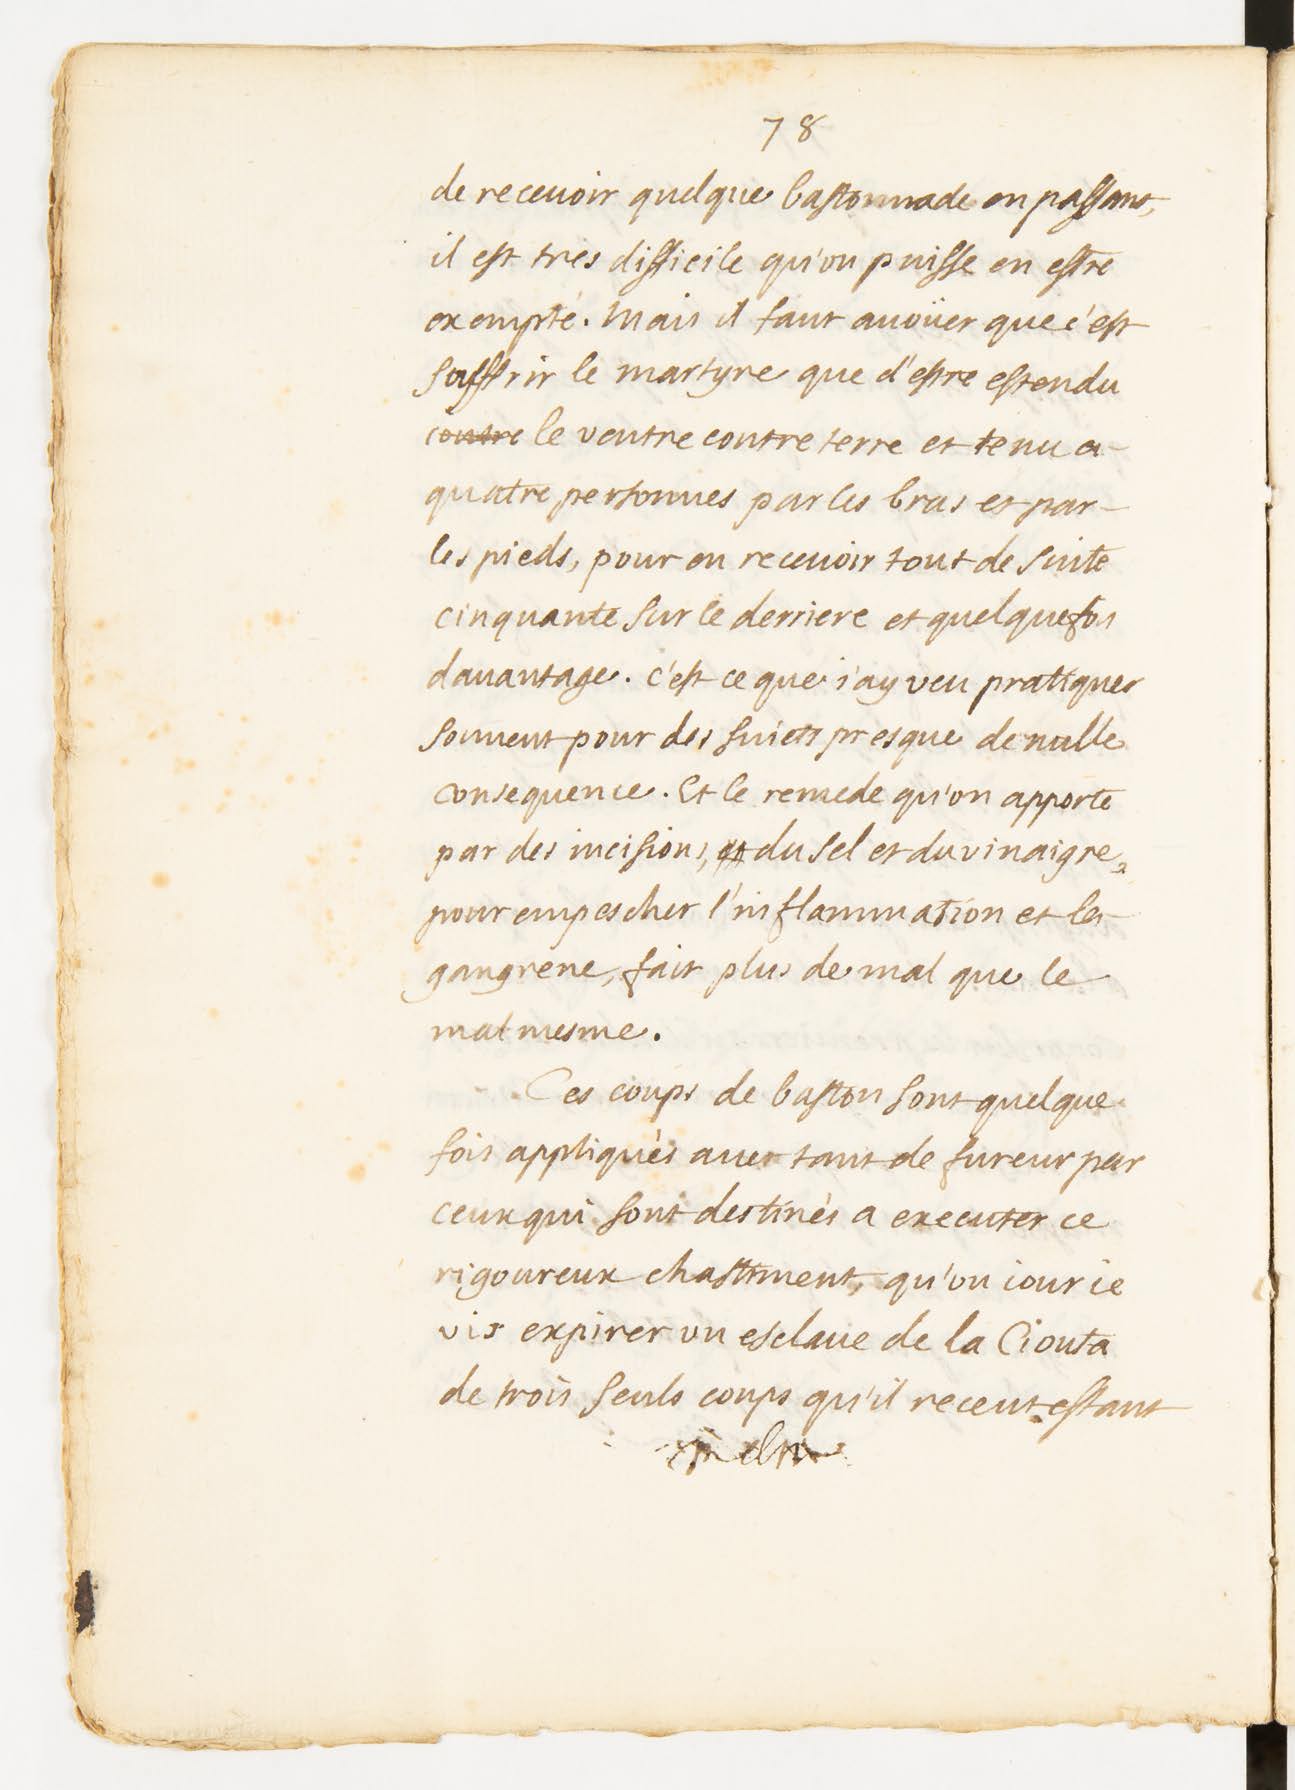 78
de receuoir quelque bastonnade en passant,
il est tres difficile qu'on puisse en estre
exempté. Mais il faut auoüer que c'est
souffrir le martyre que d'estre estendu
contre le ventre contre terre et tenu a
quatre personnes par les bras et par
les pieds, pour en receuoir tout de suite
cinquante sur le derriere et quelquefois
dauantage. c'est ce que i'ay veu pratiquer
souuent pour des suiets presque de nulle
consequence. Et le remede qu'on apporte
par des incisions, du sel et du vinaigre,
pour empescher l'inflammation et la
gangrene, fait plus de mal que le
mal mesme.
Ces coups de baston sont quelque
fois appliqués auec tant de fureur par
ceux qui sont destinés a executer ce
rigoureux chastiment, qu'vn iour ie
vis expirer vn esclaue de la Ciouta
de trois seuls coups qu'il receut estant